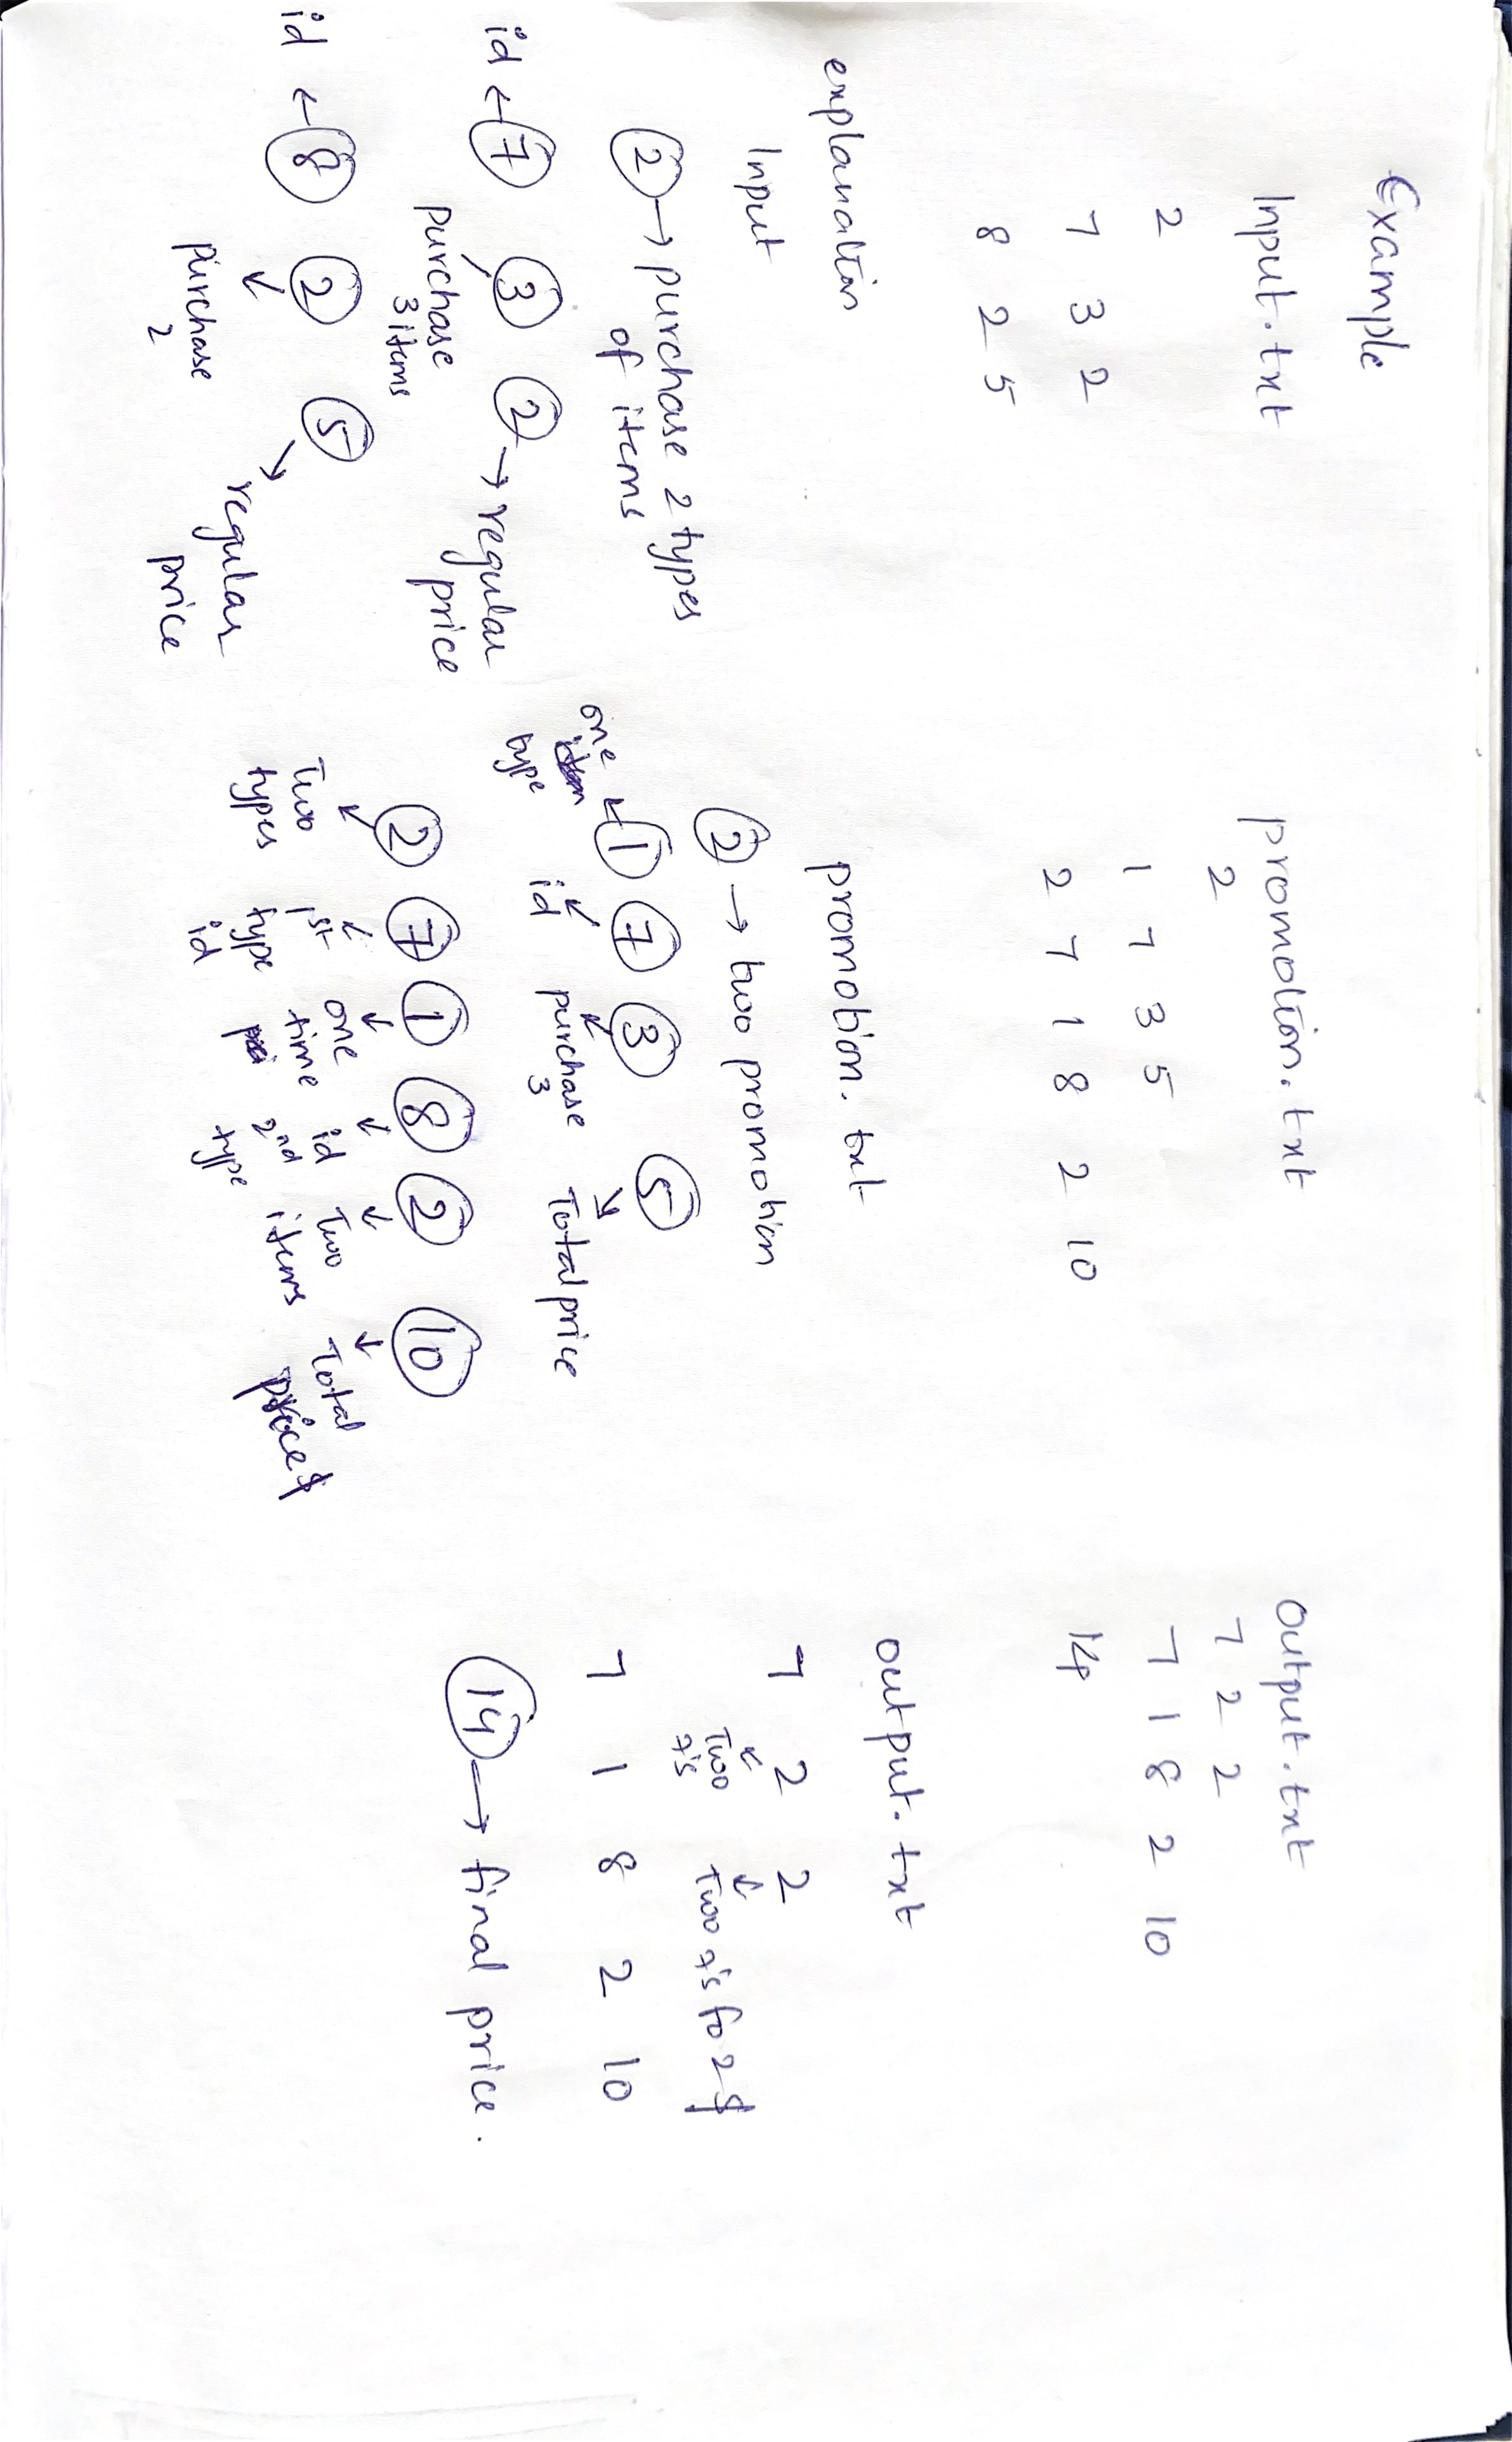 Example
Input.txt
2
7 3 2
8 2 5
promotion.txt
2
1 7 3 5
2 7 1 8 2 10
output.txt
7 2 2
7 1 8 2 10
14
explanation
Input
2 → purchase 2 types
of items
id ← 7 3 2 → regular
price
purchase
3 items
id ← 8 2 5
purchase
2
regular
price
promotion.txt
2 → two promotion
1 7 3 5
one
type
id
purchase
3
Total price
2 7 1 8 2 10
Two
types
1st
type
id
one
time
id
2nd
type
Two
items
Total
price
output.txt
7 2 2
Two
7's
Two 7's fo 2
7 1 8 2 10
14 → final price.